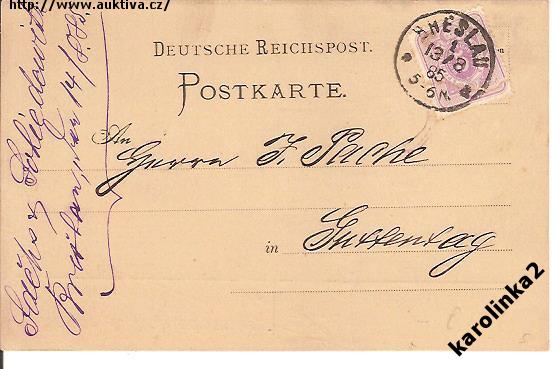 http://www.auktiva.cz/
DEUTSCHE REICHSPOST.
POSTKARTE.
BRESLAU
1
13/8
85
5-6N.
An
Herrn J. Pache
in Guttentag
Sachs &
Breslau, den 14/8.85.
karolinka2